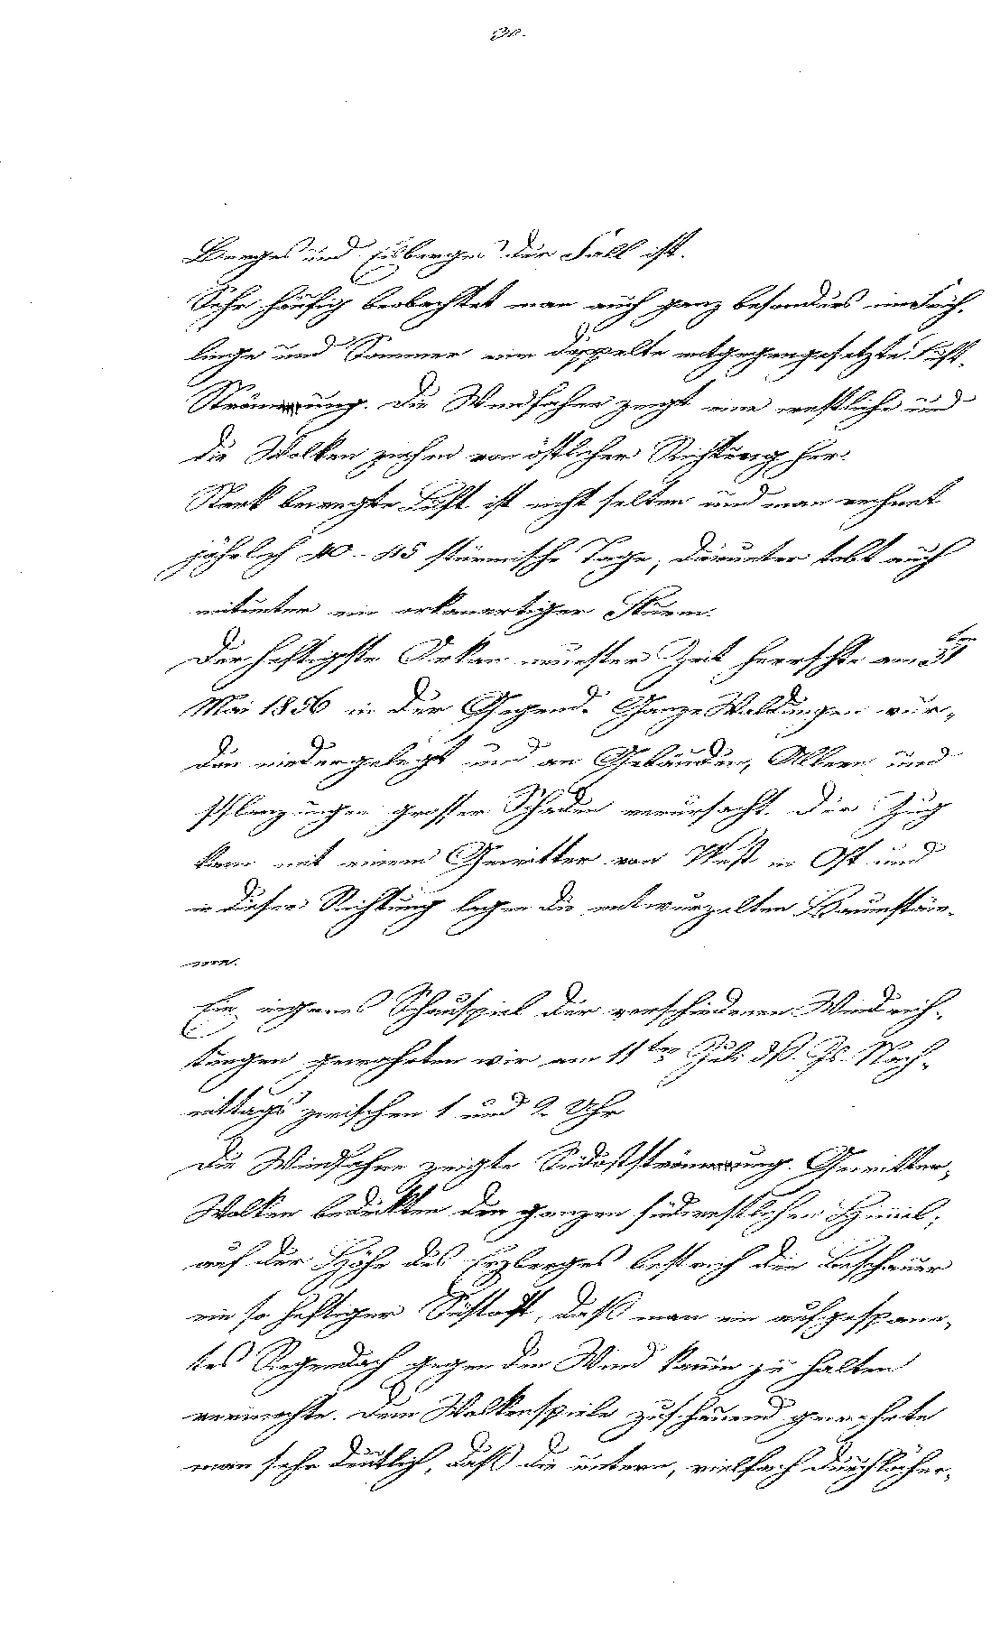 30.
Berges und Eisberges der Fall ist.
Sehr häufig beobachtet man auch ganz besonders im Früh-
linge und Sommer eine doppelte entgegengesetzte Luft-
Strömung. Die Windfahne zeigt eine westliche und
die Wolken ziehen von östlicher Richtung her.
Stark bewegte Luft ist nicht selten und man rechnet
jährlich 40-45 stürmische Tage, darunter tobt auch
mitunter ein orkanartiger Sturm.
Der heftigste Orkan neuester Zeit herrschte am 31ten
Mai 1856 in der Gegend. Ganze Waldungen wur-
den niedergelegt und an Gebäuden, Äckern und
Pflanzungen grosser Schaden verursacht. Der Zug
kam mit einem Gewitter von West in Ost und
in dieser Richtung lagen die entwurzelten Baumstäm-
men.
Ein eigenes Schauspiel der verschiedenen Windrich-
tungen gewahrten wir am 11ten Juli dß. Js. Nach-
mittags zwischen 1 und 2 Uhr
Die Windfahne zeigte Südostströmung. Gewitter-
Wolken bedeckten den ganzen südwestlichen Himmel;
auf der Höhe des Erzberges bestrich den Beschauer
ein so heftiger Südost, daß man ein aufgespann-
tes Regendach gegen den Wind kaum zu halten
vermochte. Dem Wolkenspiele zuschauend gewahrte
man sehr deutlich, daß die untern, vielfach durchlöcher-